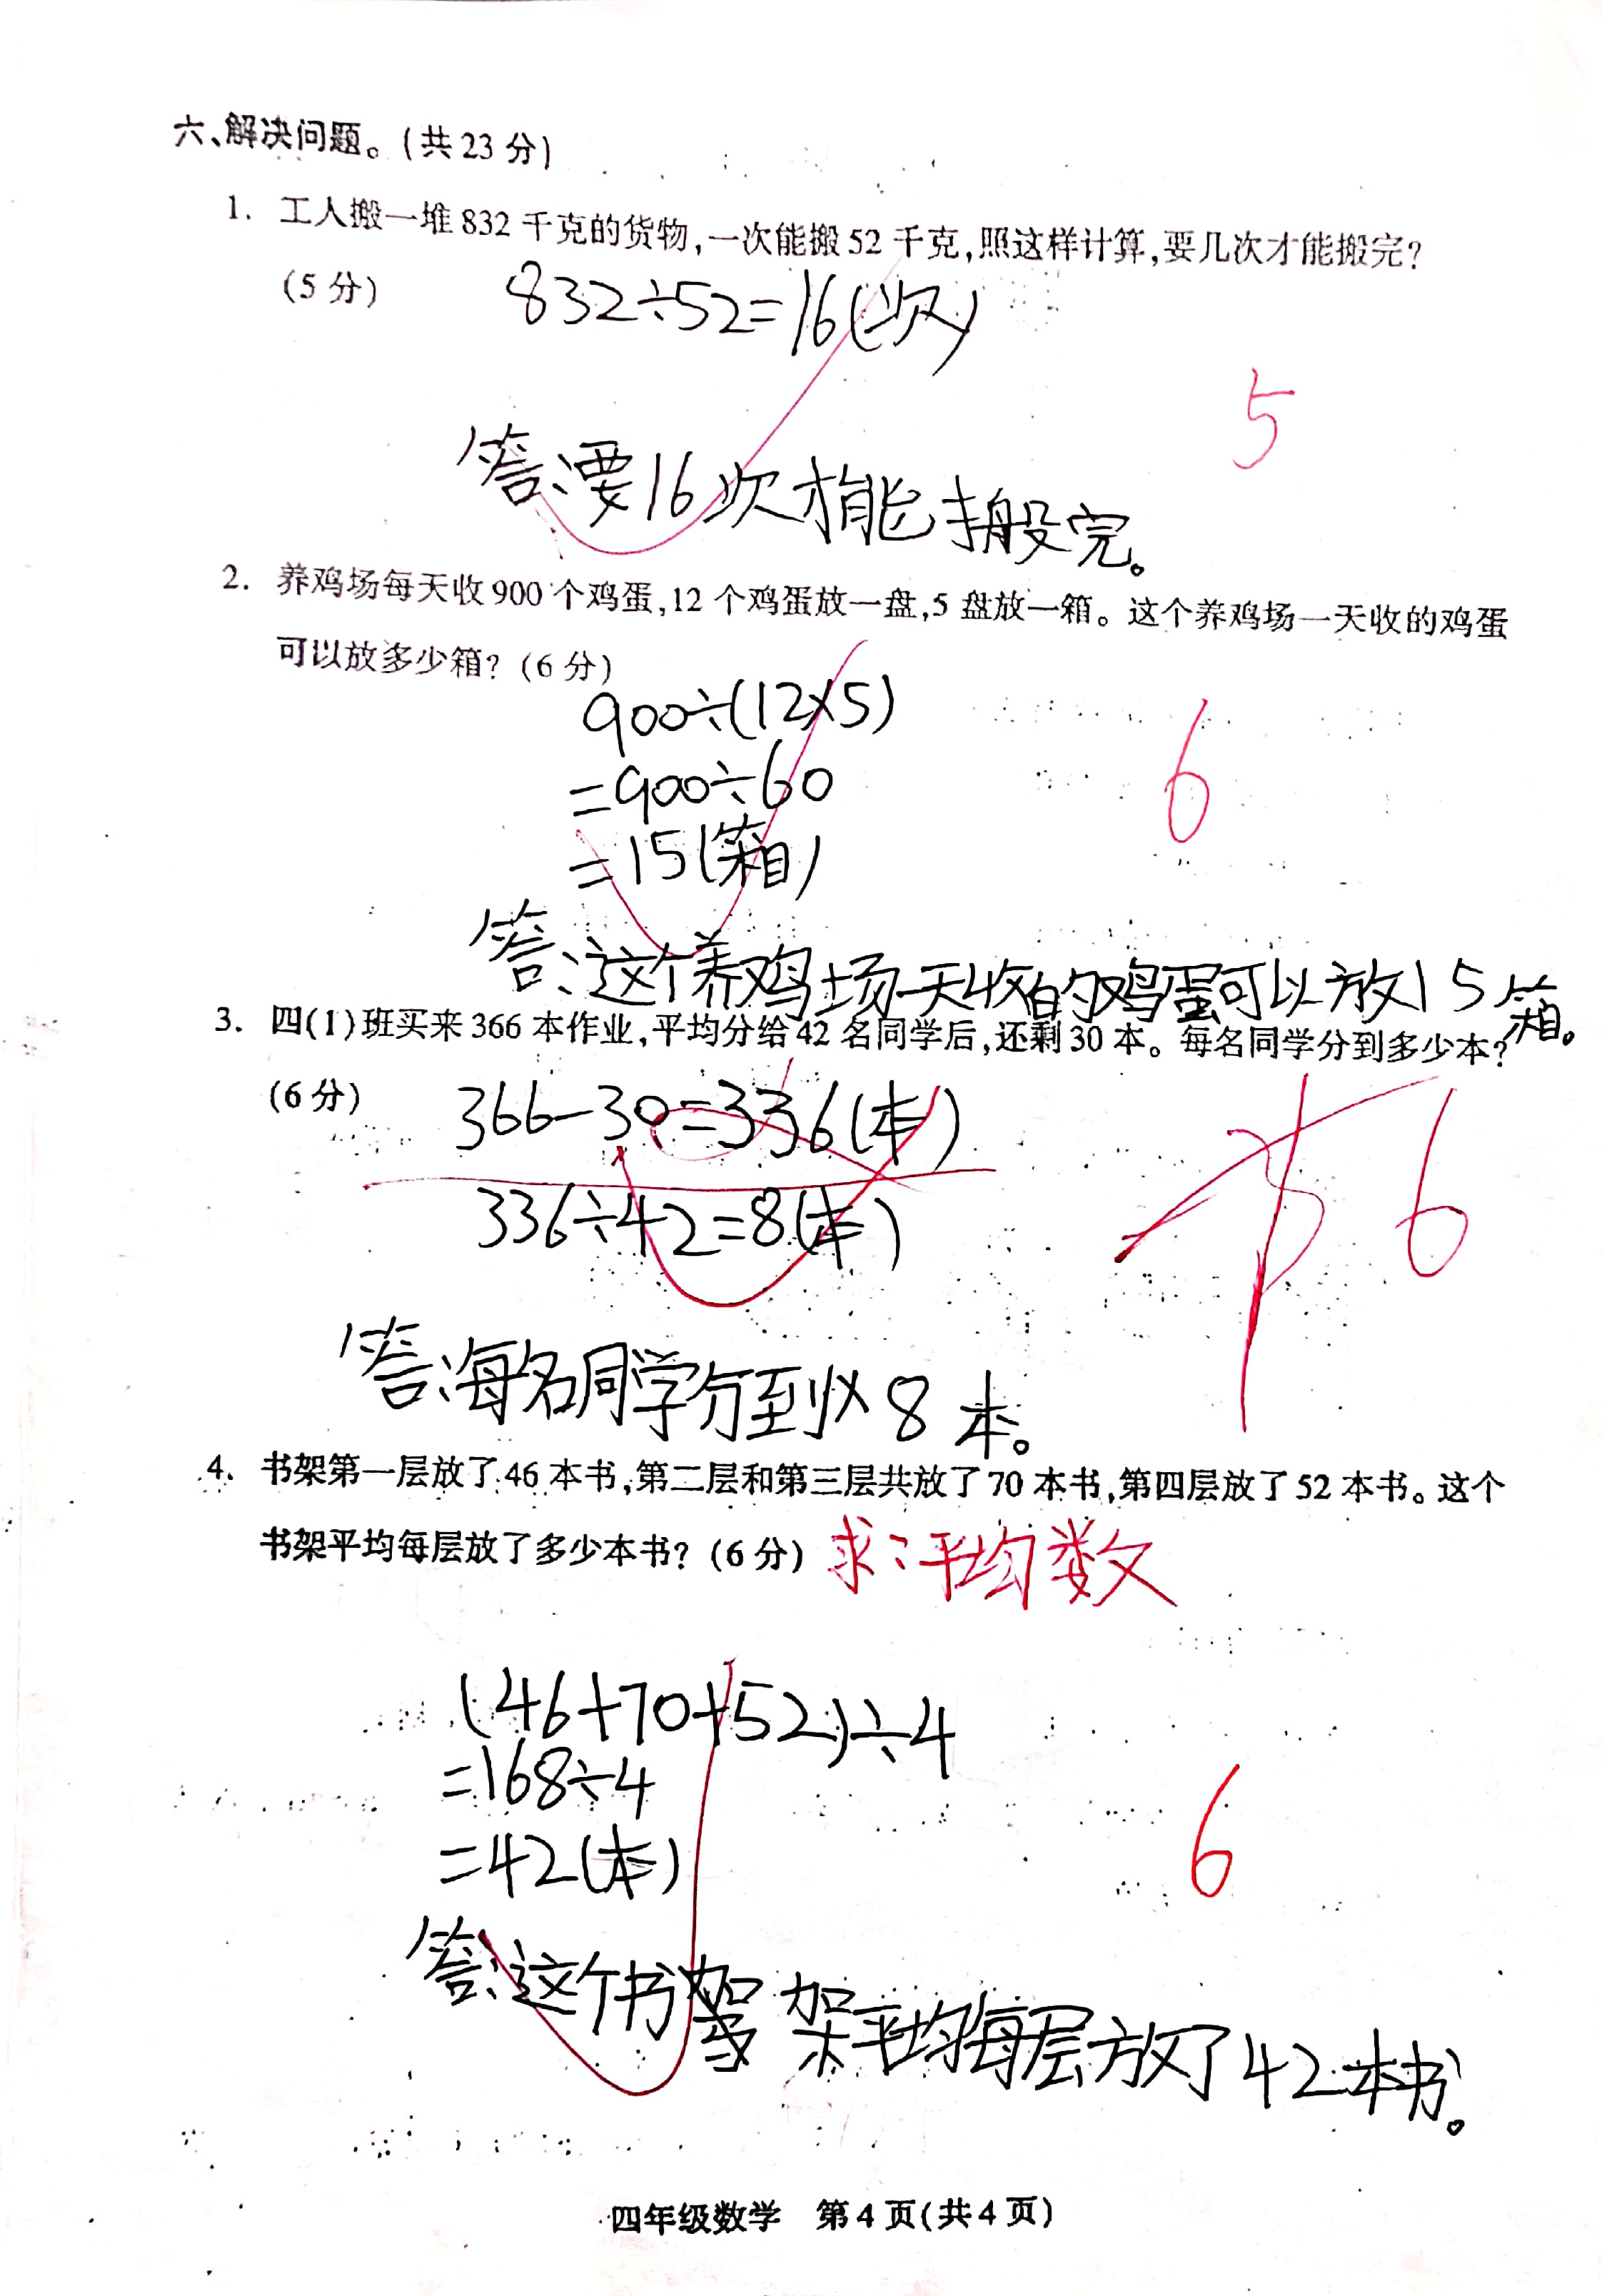 六、解决问题。(共23分)
1. 工人搬一堆832千克的货物,一次能搬52千克,照这样计算,要几次才能搬完?
(5分)
832÷52=16(次)
5
答:要16次才能搬完。
2. 养鸡场每天收900个鸡蛋,12个鸡蛋放一盘,5盘放一箱。这个养鸡场一天收的鸡蛋
可以放多少箱?(6分)
900÷(12×5)
=900÷60
6
=15(箱)
答:这个养鸡场一天收的鸡蛋可以放15箱。
3. 四(1)班买来366本作业,平均分给42名同学后,还剩30本。每名同学分到多少本?
(6分)
366-30=336(本)
6
336÷42=8(本)
答:每名同学分到8本。
4. 书架第一层放了46本书,第二层和第三层共放了70本书,第四层放了52本书。这个
书架平均每层放了多少本书?(6分)
求:平均数
(46+70+52)÷4
=168÷4
6
=42(本)
答:这个书架平均每层放了42本书。
四年级数学 第4页(共4页)